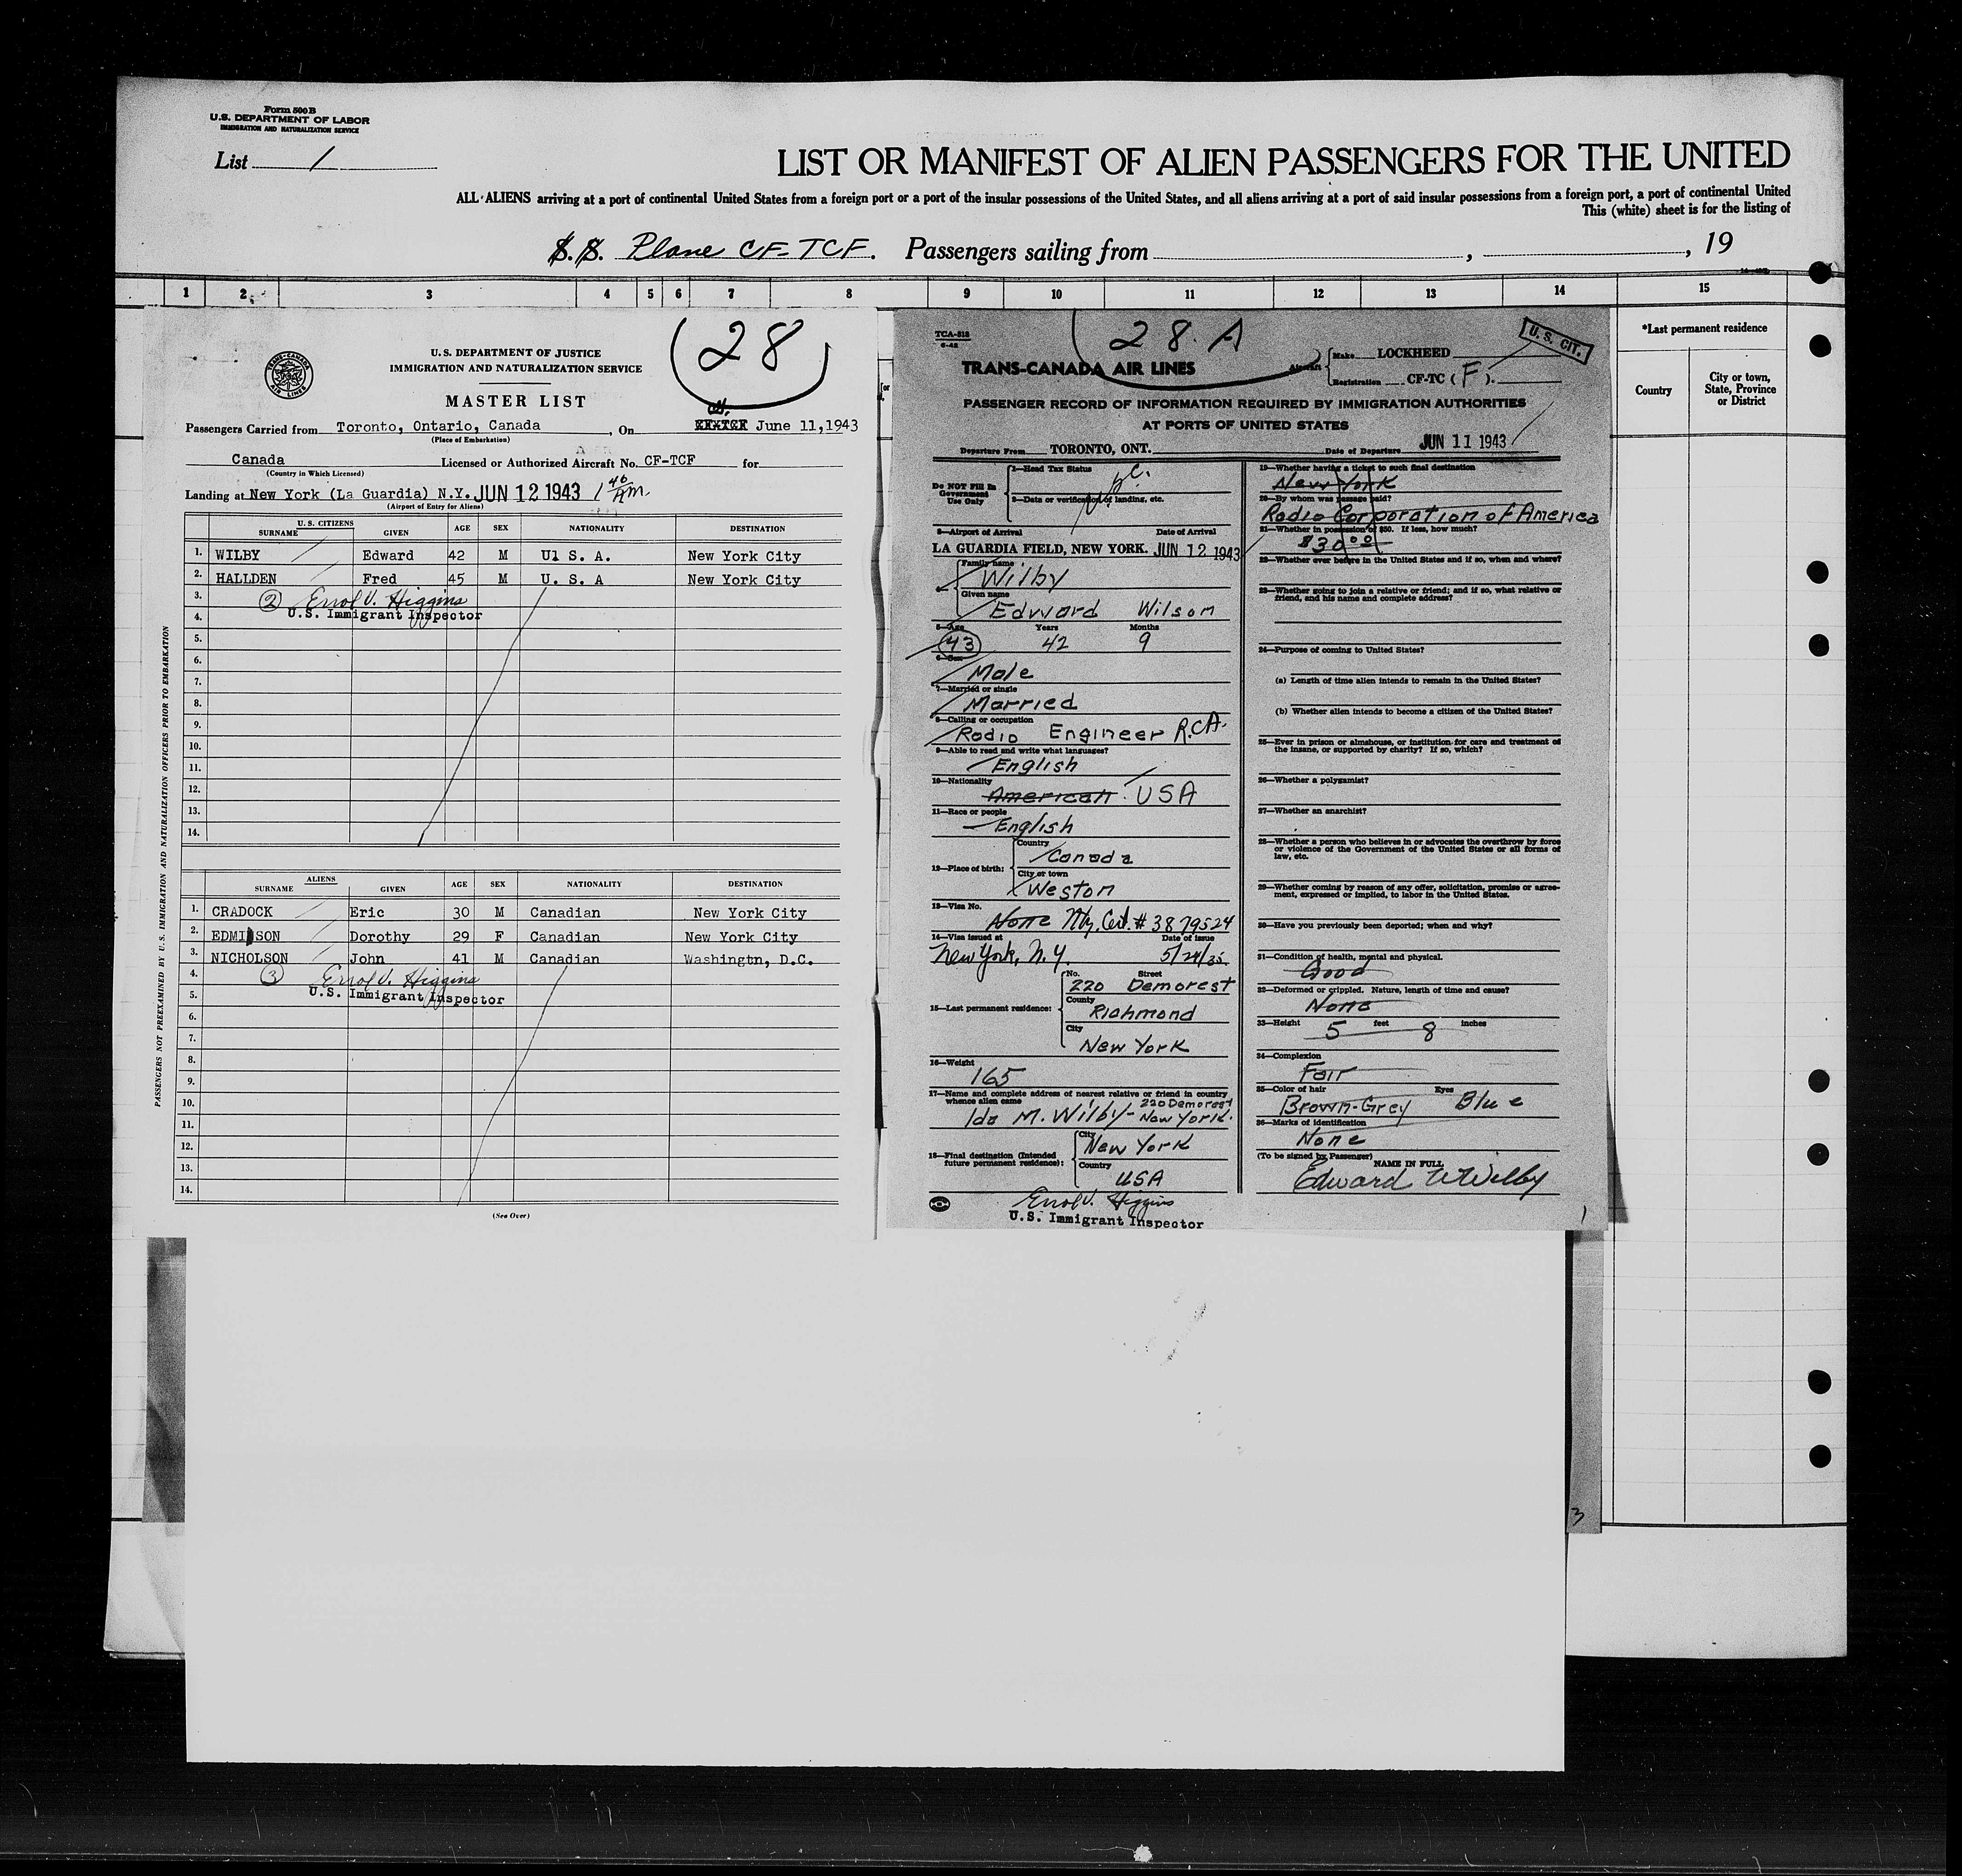 Form 500 B
U.S. DEPARTMENT OF LABOR
IMMIGRATION AND NATURALIZATION SERVICE
List 1
LIST OR MANIFEST OF ALIEN PASSENGERS FOR THE UNITED
ALL ALIENS arriving at a port of continental United States from a foreign port or a port of the insular possessions of the United States, and all aliens arriving at a port of said insular possessions from a foreign port, a port of continental United
This (white) sheet is for the listing of
S.S. Plane CF-TCF. Passengers sailing from , , 19
1 2 3 4 5 6 7 8 9 10 11 12 13 14 15
*Last permanent residence
Country
City or town, State, Province or District
(28)
TRANS-CANADA AIR LINES
U.S. DEPARTMENT OF JUSTICE
IMMIGRATION AND NATURALIZATION SERVICE
MASTER LIST
Passengers Carried from Toronto, Ontario, Canada, On June 11,1943
(Place of Embarkation)
Canada Licensed or Authorized Aircraft No. CF-TCF for
(Country in Which Licensed)
Landing at New York (La Guardia) N.Y. JUN 12 1943 1 46 AM.
(Airport of Entry for Aliens)
U.S. CITIZENS
SURNAME GIVEN AGE SEX NATIONALITY DESTINATION
1. WILBY Edward 42 M Ul S. A. New York City
2. HALLDEN Fred 45 M U. S. A New York City
3. (2) Errol V. Higgins
4. U.S. Immigrant Inspector
5.
6.
7.
8.
9.
10.
11.
12.
13.
14.
ALIENS
SURNAME GIVEN AGE SEX NATIONALITY DESTINATION
1. CRADOCK Eric 30 M Canadian New York City
2. EDMISON Dorothy 29 F Canadian New York City
3. NICHOLSON John 41 M Canadian Washingtn, D.C.
4. (3) Errol V. Higgins
5. U.S. Immigrant Inspector
6.
7.
8.
9.
10.
11.
12.
13.
14.
(See Over)
PASSENGERS NOT PREEXAMINED BY U.S. IMMIGRATION AND NATURALIZATION OFFICERS PRIOR TO EMBARKATION
TCA-818
6-42
28 A
U. S. CIT.
TRANS-CANADA AIR LINES
Aircraft Make LOCKHEED
Registration CF-TC ( F ).
PASSENGER RECORD OF INFORMATION REQUIRED BY IMMIGRATION AUTHORITIES
AT PORTS OF UNITED STATES
Departure From TORONTO, ONT. Date of Departure JUN 11 1943
Do NOT Fill In Government Use Only
1—Head Tax Status
2—Date or verification of landing, etc.
3—Airport of Arrival Date of Arrival
LA GUARDIA FIELD, NEW YORK. JUN 12 1943
Family name
Wilby
4—
Given name
Edward Wilson
5—Age Years Months
(43) 42 9
6—Sex
Male
7—Married or single
Married
8—Calling or occupation
Radio Engineer R.C.A.
9—Able to read and write what languages?
English
10—Nationality
American USA
11—Race or people
English
12—Place of birth:
Country
Canada
City or town
Weston
13—Visa No.
None Ntz. Cert. # 3879524
14—Visa issued at Date of issue
New York, N.Y. 5/24/35
15—Last permanent residence:
No. Street
220 Demorest
County
Richmond
City
New York
16—Weight
165
17—Name and complete address of nearest relative or friend in country whence alien came
Ida M. Wilby - 220 Demorest New York.
18—Final destination (Intended future permanent residence):
City
New York
Country
USA
Errol V. Higgins
U.S. Immigrant Inspector
19—Whether having a ticket to such final destination
New York
20—By whom was passage paid?
Radio Corporation of America
21—Whether in possession of $50. If less, how much?
$30 00
22—Whether ever before in the United States and if so, when and where?
23—Whether going to join a relative or friend; and if so, what relative or friend, and his name and complete address?
24—Purpose of coming to United States?
(a) Length of time alien intends to remain in the United States?
(b) Whether alien intends to become a citizen of the United States?
25—Ever in prison or almshouse, or institution for care and treatment of the insane, or supported by charity? If so, which?
26—Whether a polygamist?
27—Whether an anarchist?
28—Whether a person who believes in or advocates the overthrow by force or violence of the Government of the United States or all forms of law, etc.
29—Whether coming by reason of any offer, solicitation, promise or agreement, expressed or implied, to labor in the United States.
30—Have you previously been deported; when and why?
31—Condition of health, mental and physical.
Good
32—Deformed or crippled. Nature, length of time and cause?
None
33—Height 5 feet 8 inches
34—Complexion
Fair
35—Color of hair Eyes
Brown-Grey Blue
36—Marks of identification
None
(To be signed by Passenger) NAME IN FULL
Edward W Wilby
1
3